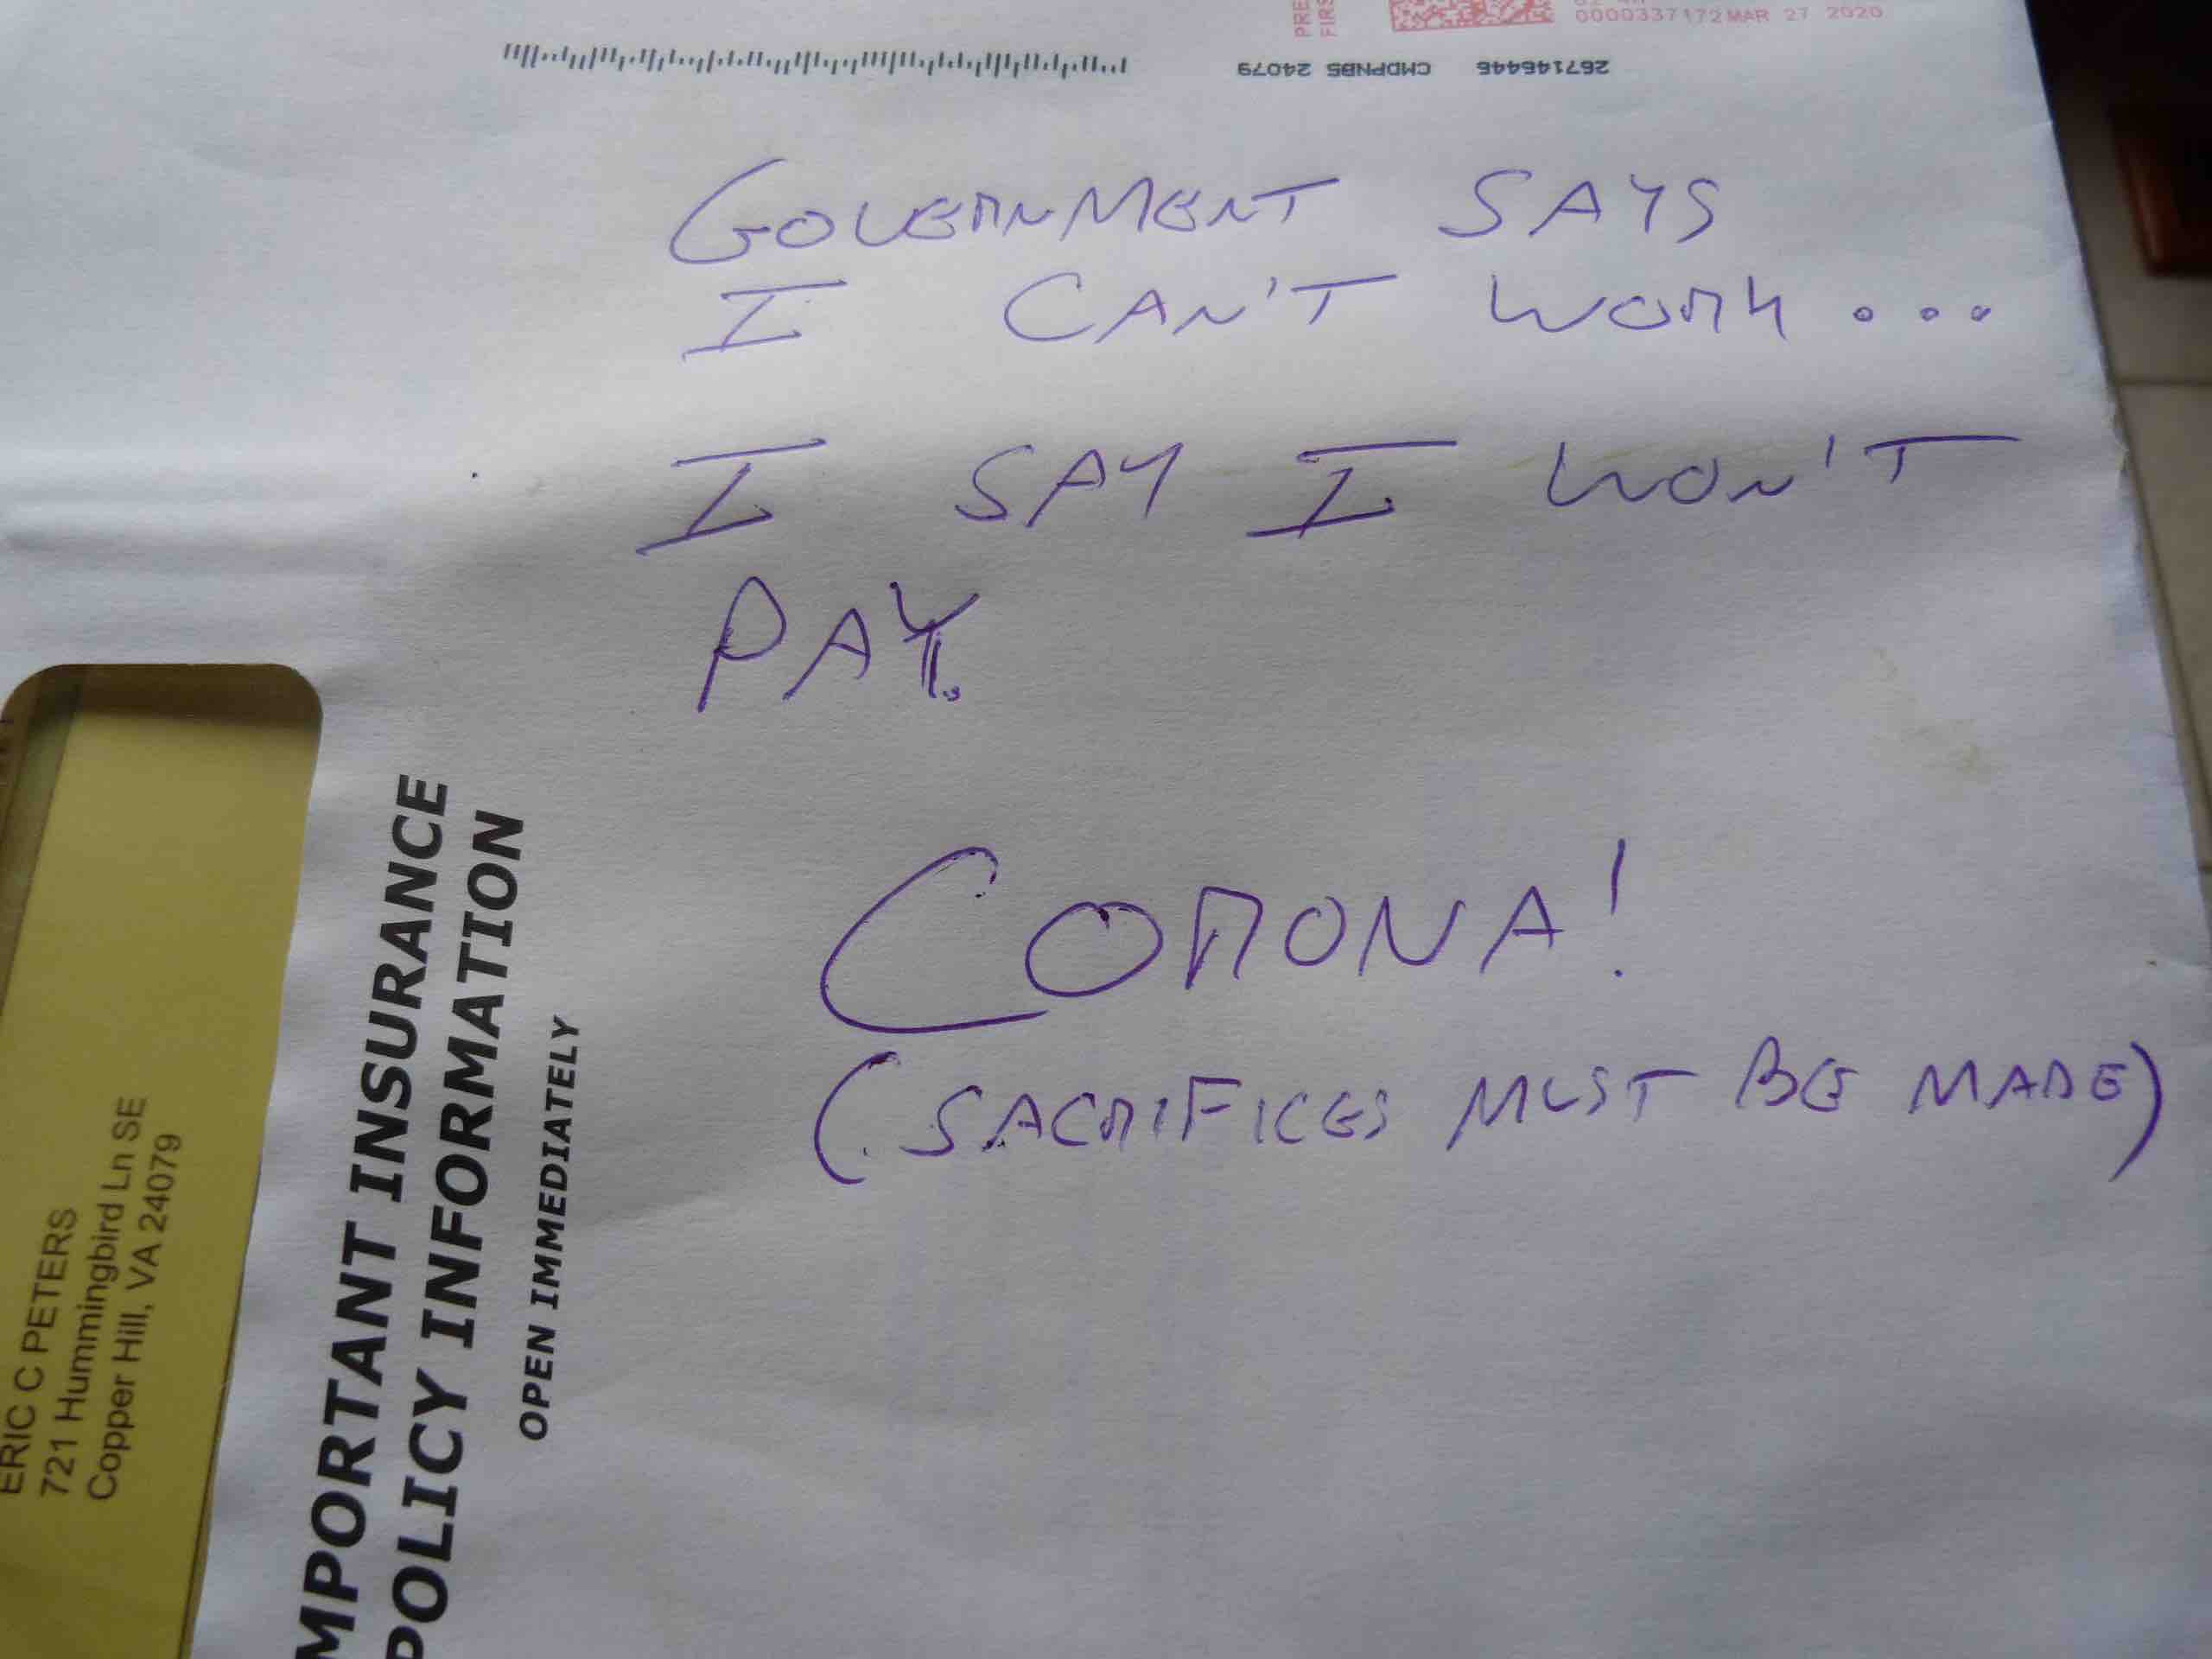 0000337172 MAR 27 2020
267146446 CMDPNBS 24079
GOVERNMENT SAYS
I CAN'T WORK...
I SAY I WON'T
PAY.
CORONA!
(SACRIFICES MUST BE MADE)
MPORTANT INSURANCE
POLICY INFORMATION
OPEN IMMEDIATELY
ERIC C PETERS
721 Hummingbird Ln SE
Copper Hill, VA 24079